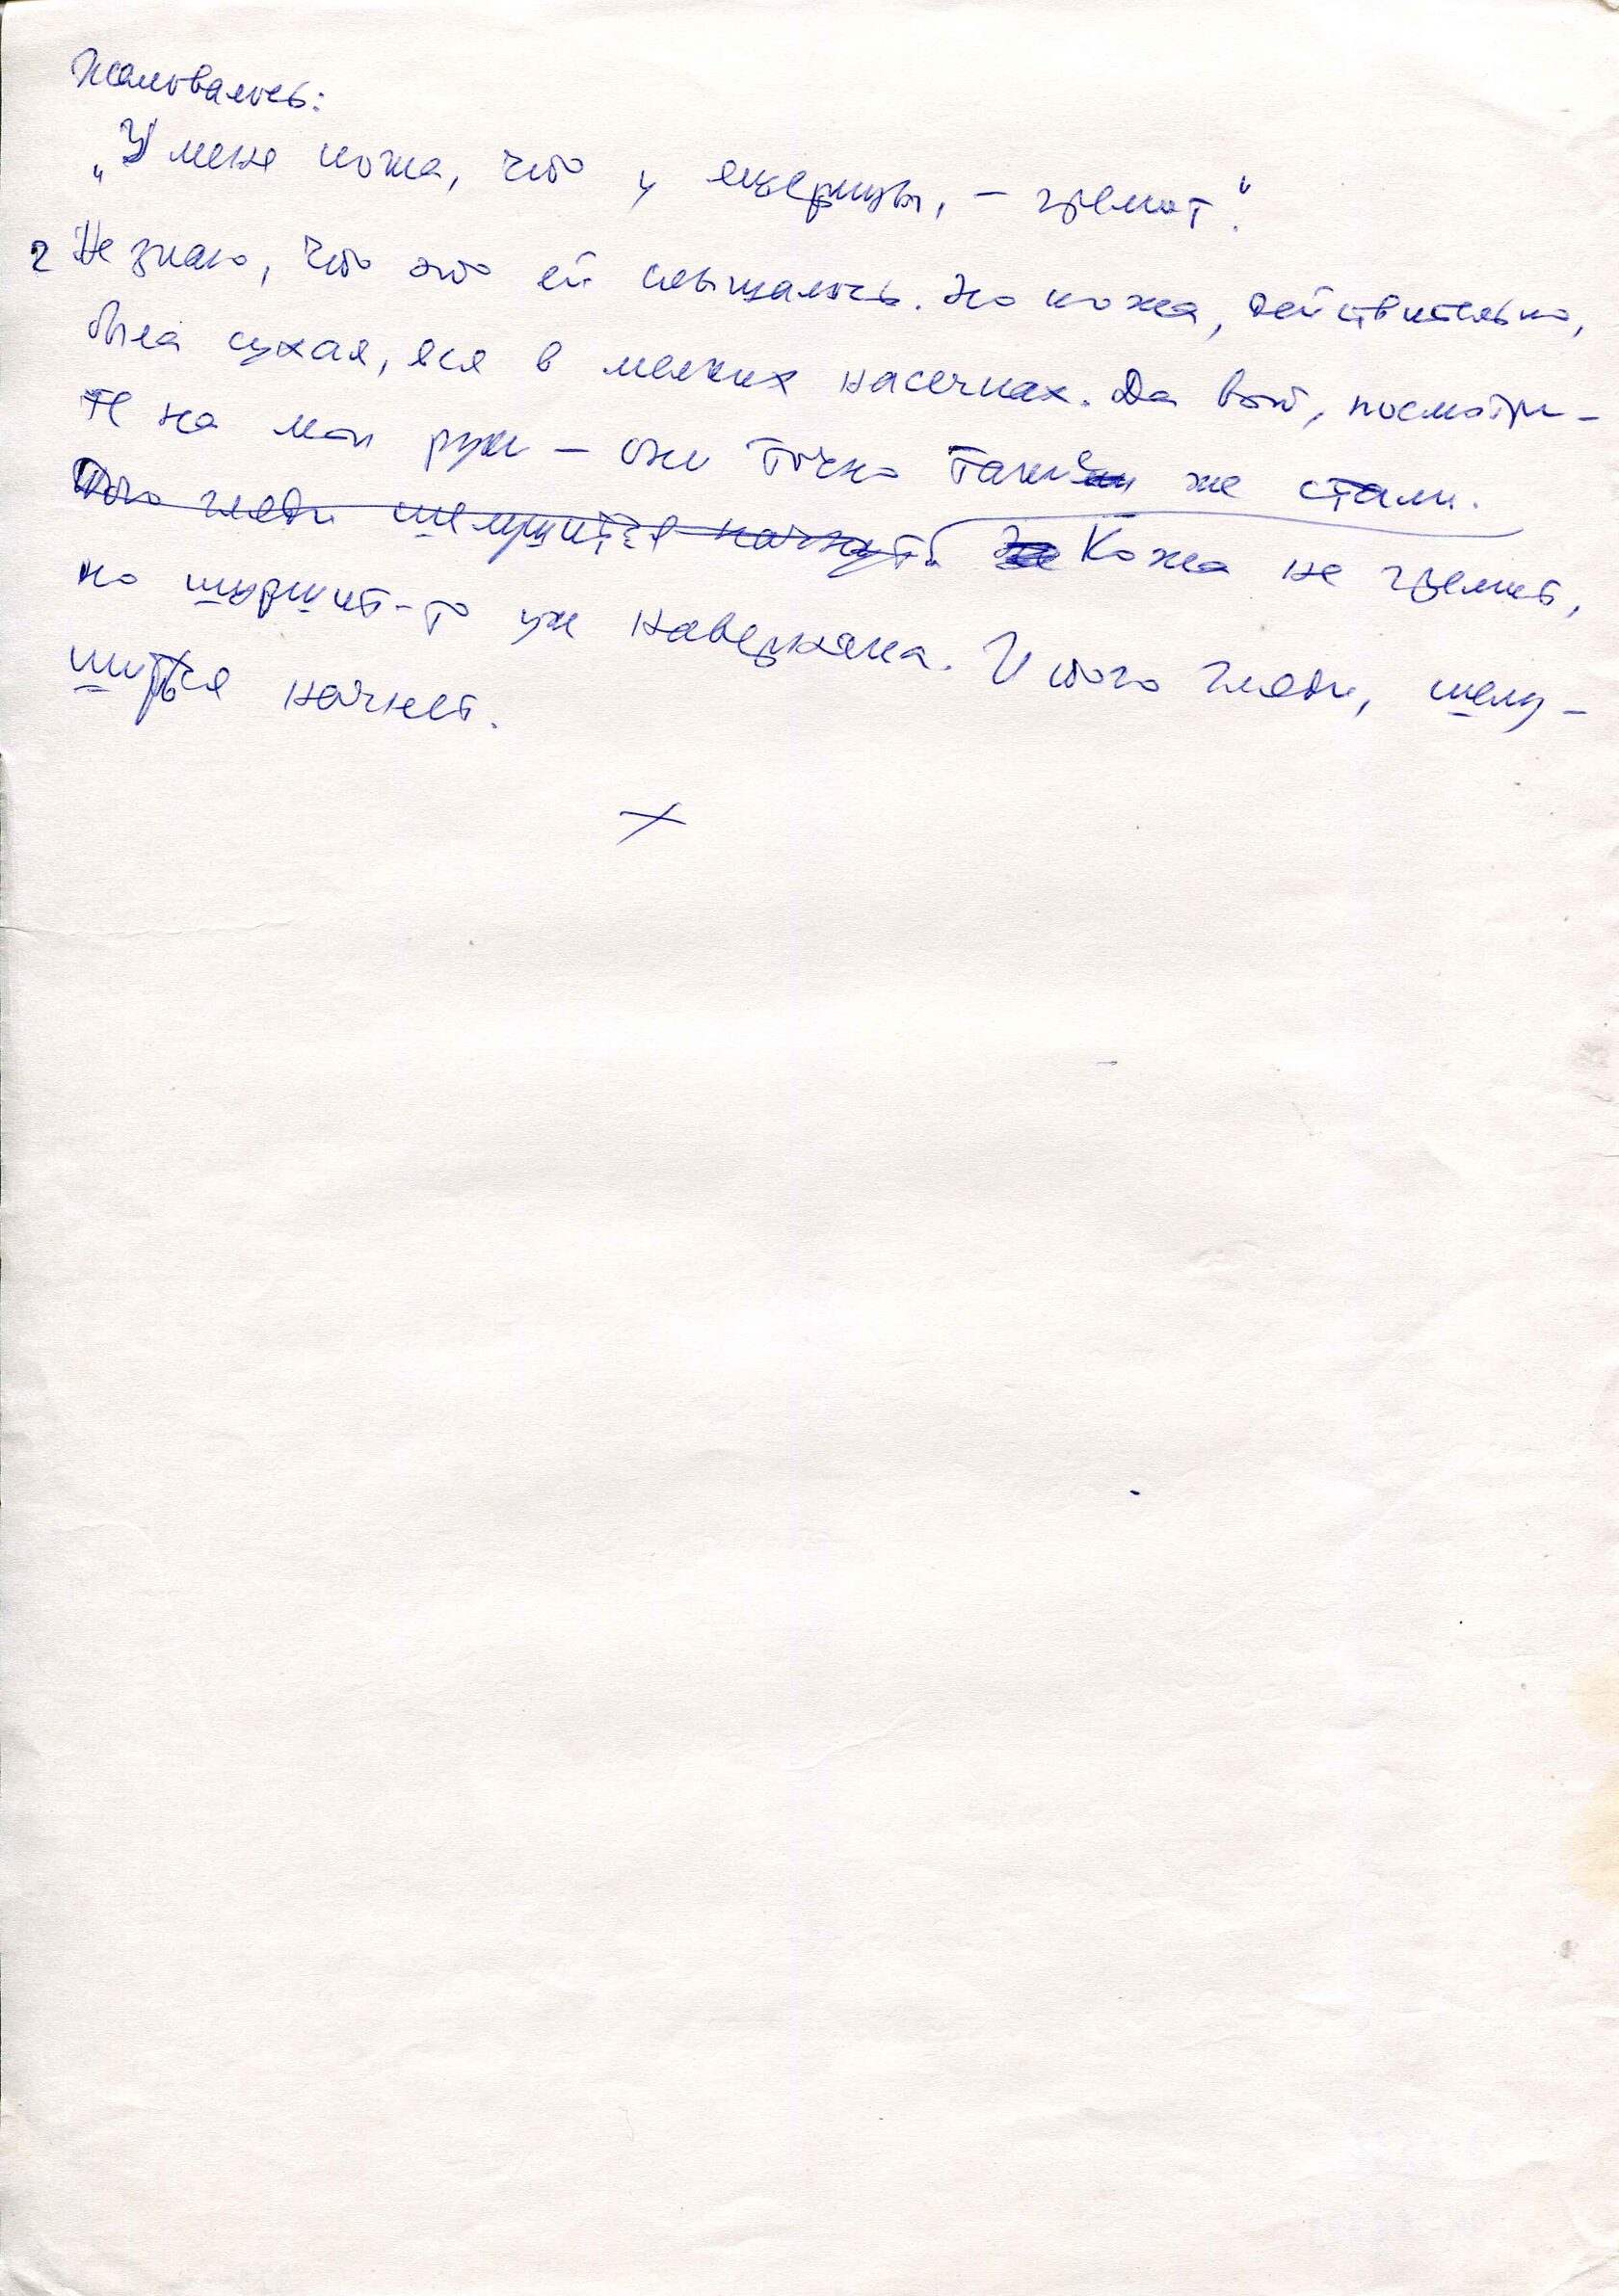 Жаловалась:
„У меня кожа, что у ящерицы, – гремит".
2 Не знаю, что это ей слышалось. Но кожа, действительно,
была сухая, вся в мелких насечках. Да вот, посмотри-
те на мои руки – они точно такие же стали.
Того гляди шелушиться начнут. Кожа не гремит,
но шуршит-то уж наверняка. И того гляди, шелу-
шиться начнет.